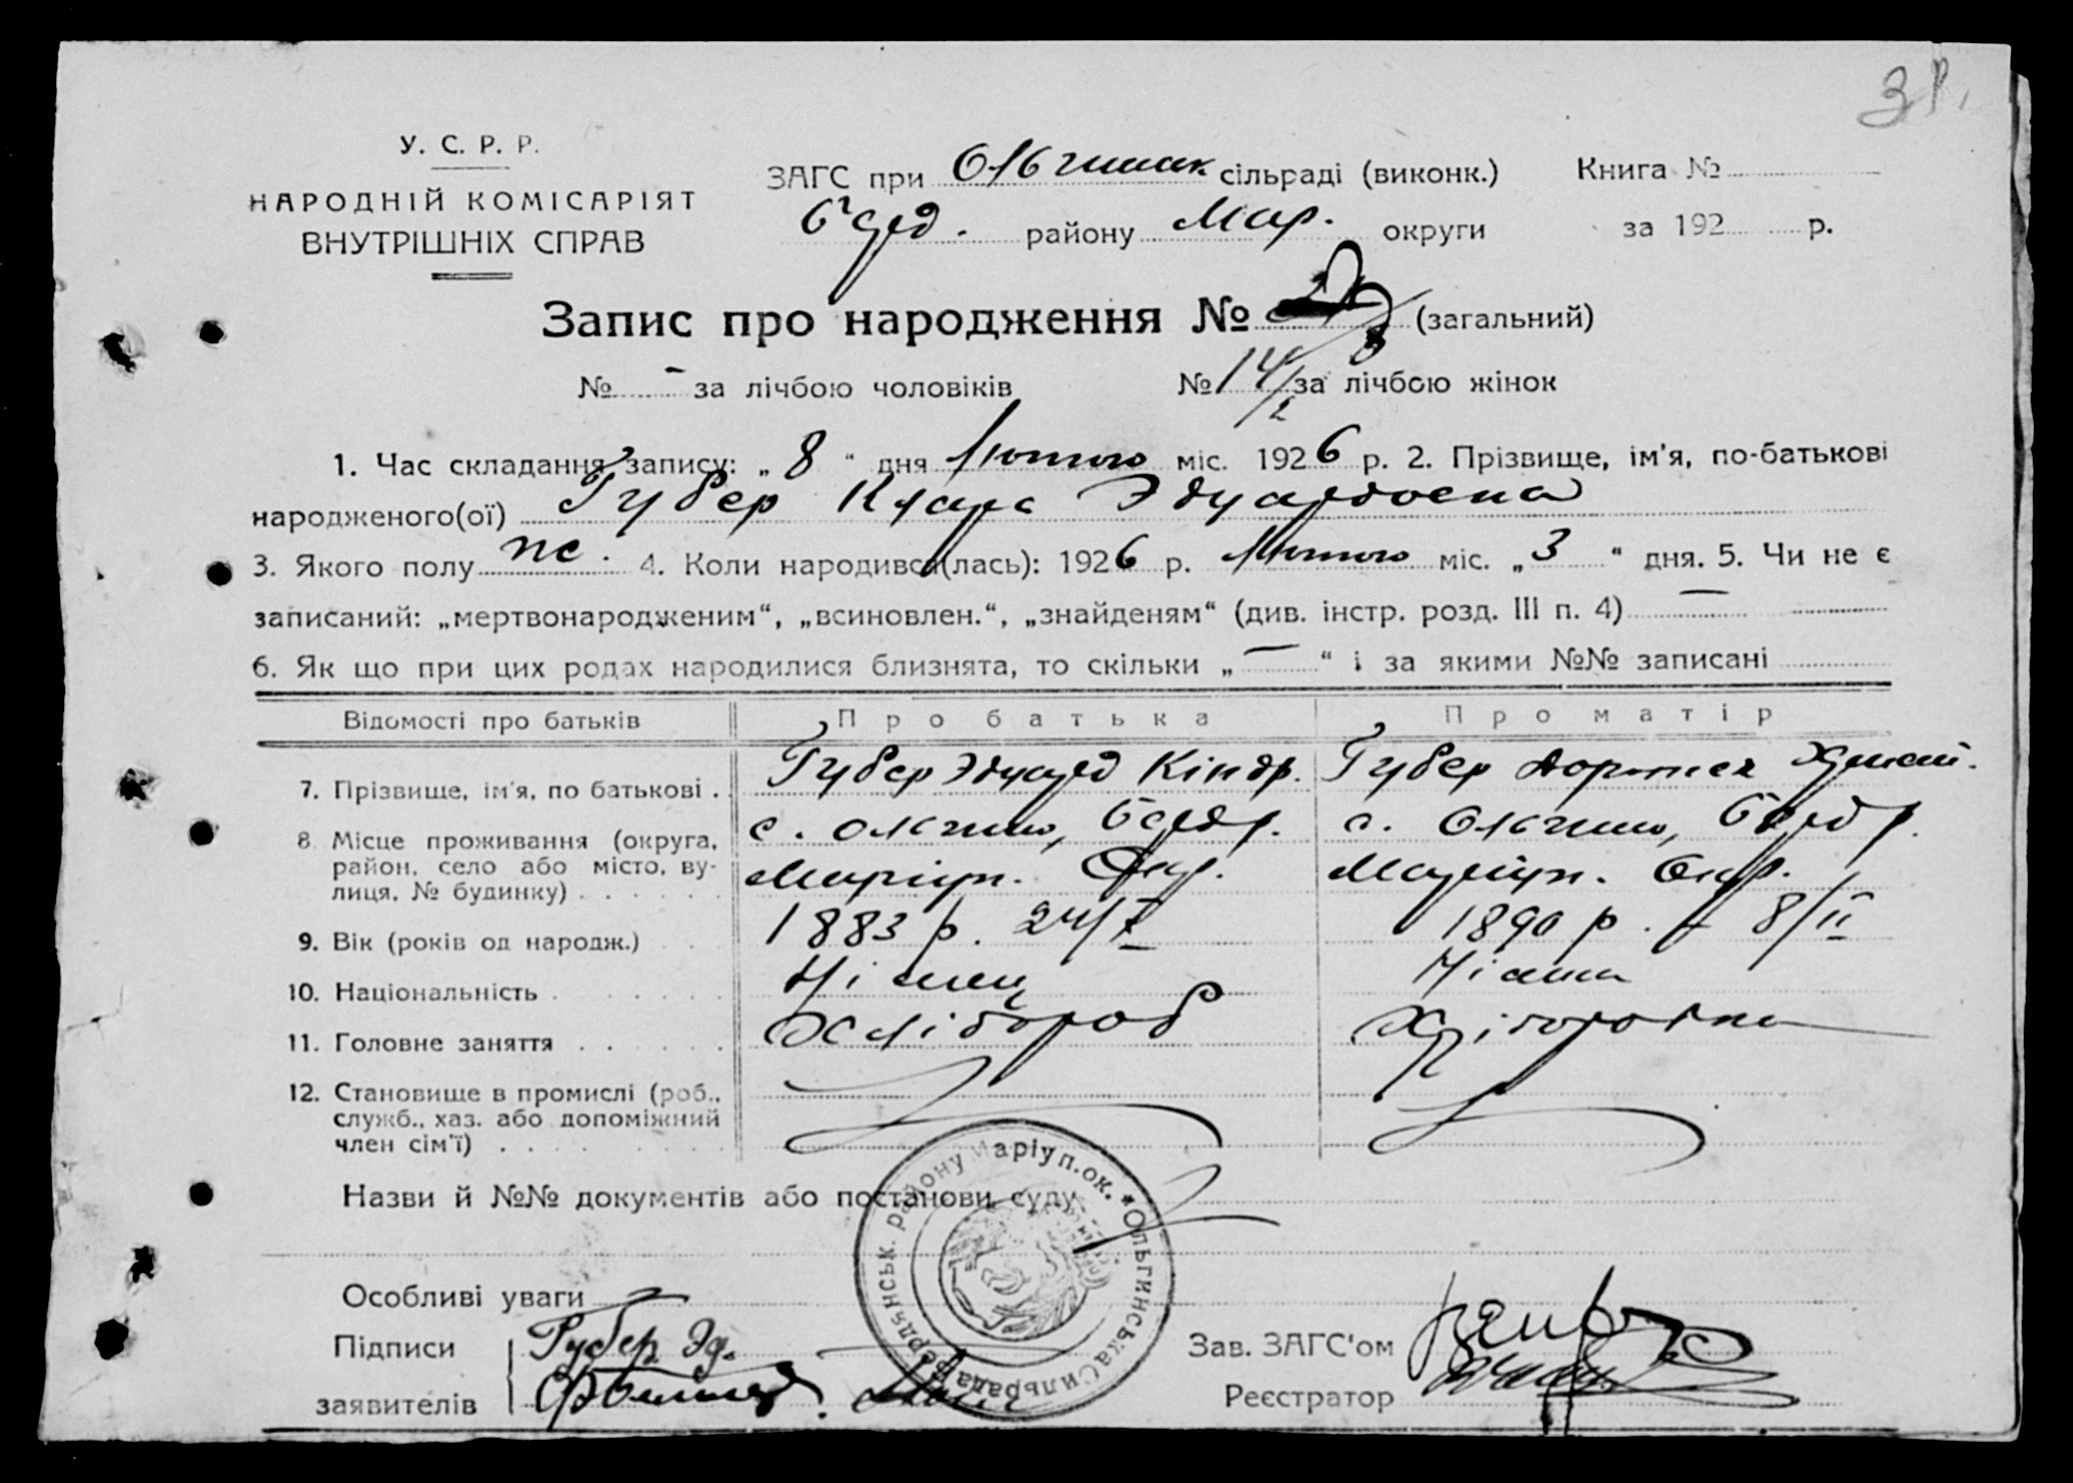 31.
У. С. Р. Р.
НАРОДНІЙ КОМІСАРІЯТ
ВНУТРІШНІХ СПРАВ
ЗАГС при Ольгинськ. сільраді (виконк.) Книга №
б. Берд. району Мар. округи за 192 р.
Запис про народження № (загальний)
№ - за лічбою чоловіків № 14/2 за лічбою жінок
1. Час складання запису: „ 8 “ дня Лютого міс. 1926 р. 2. Прізвище, ім'я, по-батькові
народженого(ої) Губер Клара Эдуардовна
3. Якого полу ж. 4. Коли народився(лась): 1926 р. Лютого міс. „ 3 “ дня. 5. Чи не є
записаний: „мертвонародженим“, „всиновлен.“, „знайденям“ (див. інстр. розд. III п. 4) —
6. Як що при цих родах народилися близнята, то скільки „ — “ і за якими №№ записані
Відомості про батьків Про батька Про матір
7. Прізвище, ім'я, по батькові . Губер Эдуард Кіндр. Губер Доротея
8 Місце проживання (округа, район, село або місто, вулиця, № будинку) с. Ольгино, Бердр. Маріуп. Окр. с. Ольгино, Бердр. Маріуп. Окр.
9. Вік (років од народж.) 1883 р. 24/I 1890 р. 8/II
10. Національність Німец Німка
11. Головне заняття Хлібороб Хліборобка
12. Становище в промислі (роб., служб., хаз. або допоміжний член сім'ї)
Назви й №№ документів або постанови суду
Особливі уваги
Підписи Губер Эд. Зав. ЗАГС'ом
заявителів Реєстратор
Бердянськ. району Маріуп. ок. * Ольгинська Сильрада